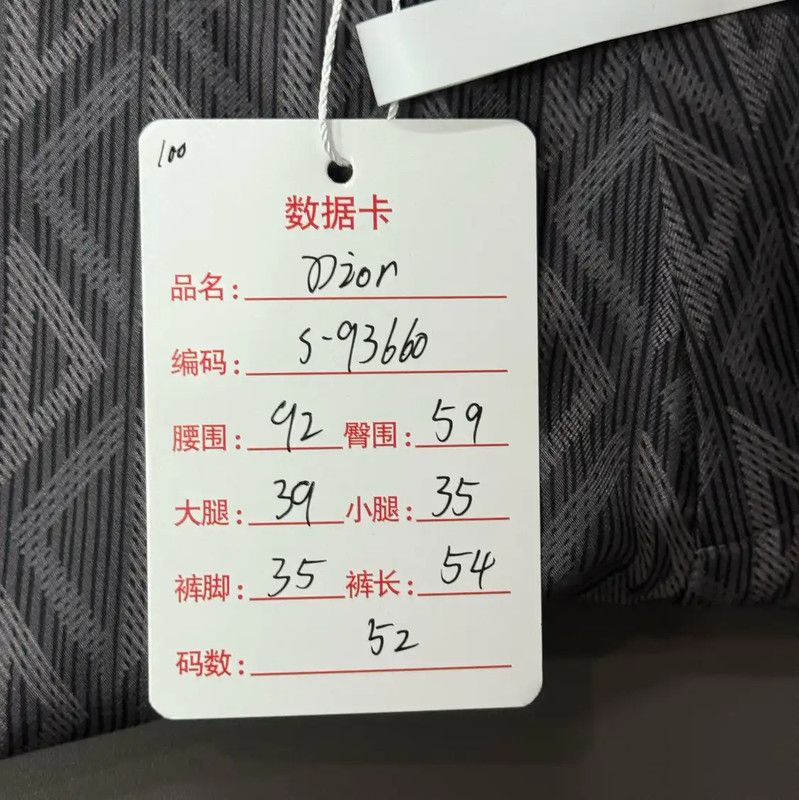 100
数据卡
品名: Dior
编码: S-93660
腰围: 92 臀围: 59
大腿: 39 小腿: 35
裤脚: 35 裤长: 54
码数: 52